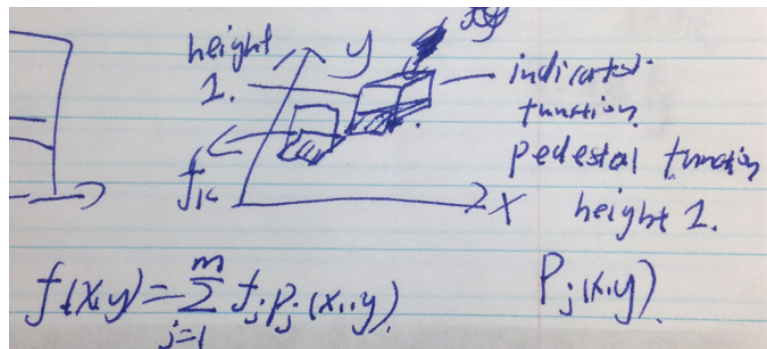 height y
1.
indicator
function.
pedestal function
x height 1.
f(x,y)=∑_{j=1}^{m} f_j p_j(x,y). P_j(x,y).